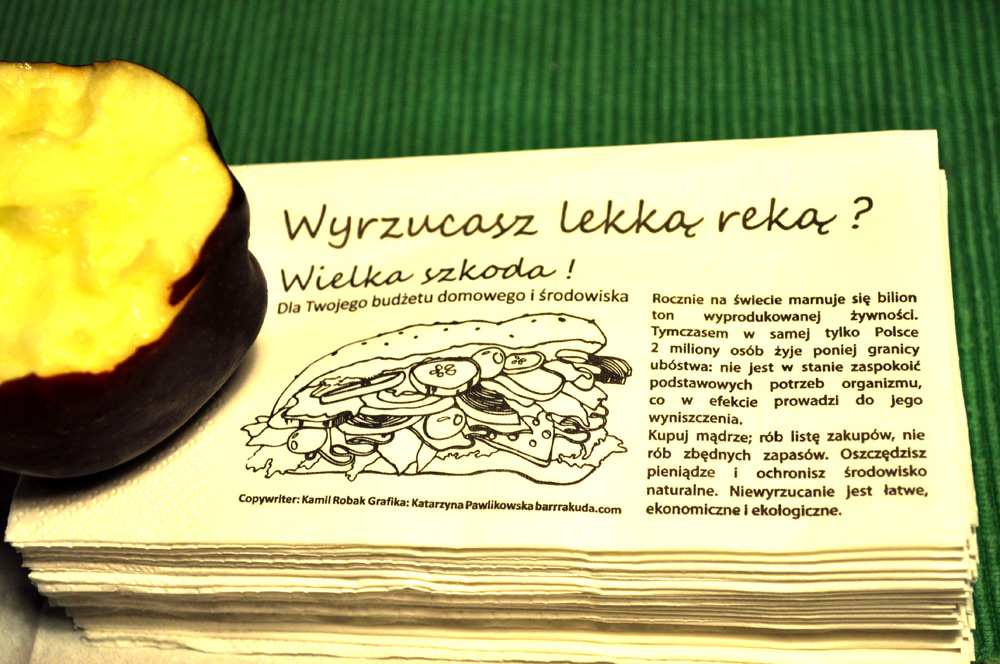 Wyrzucasz lekką reką ?
Wielka szkoda !
Dla Twojego budżetu domowego i środowiska
Rocznie na świecie marnuje się bilion
ton wyprodukowanej żywności.
Tymczasem w samej tylko Polsce
2 miliony osób żyje poniej granicy
ubóstwa: nie jest w stanie zaspokoić
podstawowych potrzeb organizmu,
co w efekcie prowadzi do jego
wyniszczenia.
Kupuj mądrze; rób listę zakupów, nie
rób zbędnych zapasów. Oszczędzisz
pieniądze i ochronisz środowisko
naturalne. Niewyrzucanie jest łatwe,
ekonomiczne i ekologiczne.
Copywriter: Kamil Robak Grafika: Katarzyna Pawlikowska barrrakuda.com